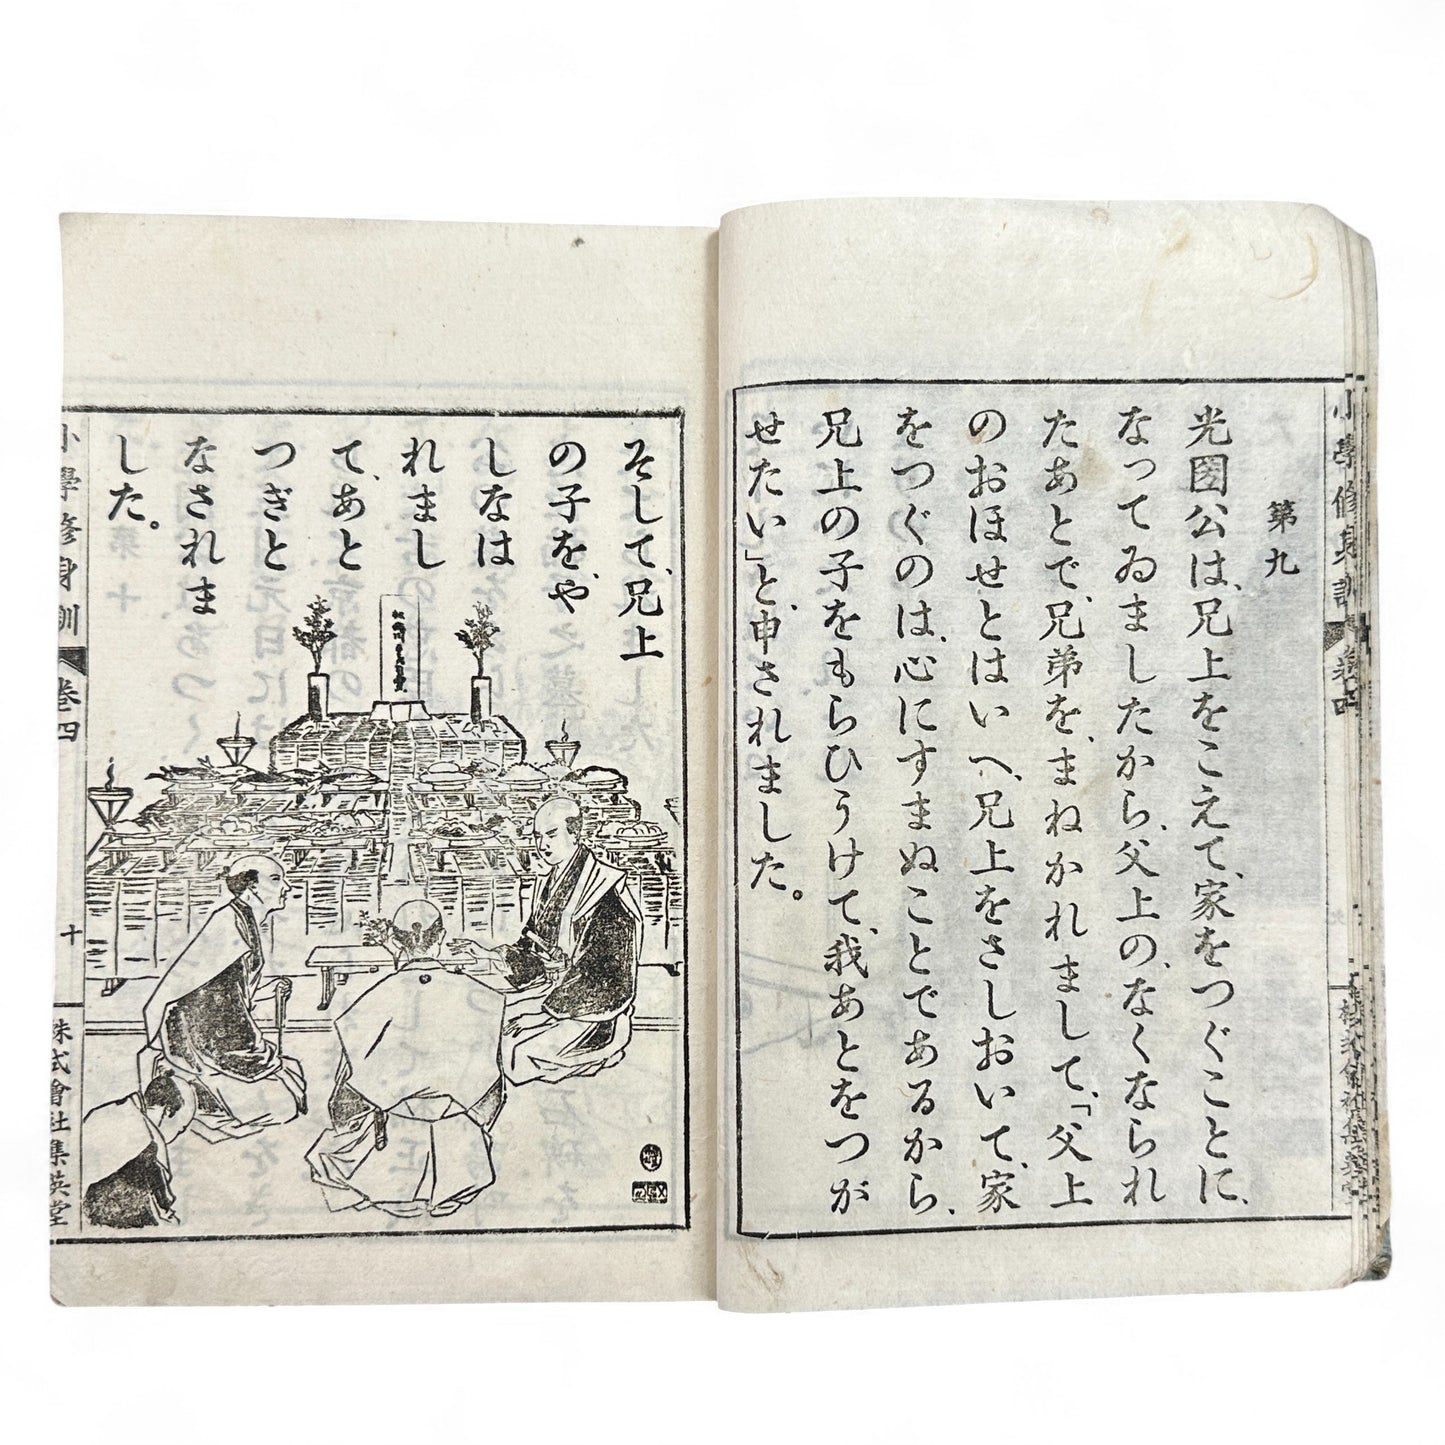 第九
光圀公は、兄上をこえて、家をつぐことに、
なってゐましたから、父上の、なくなられ
たあとで、兄弟を、まねかれまして、「父上
のおほせとはいへ、兄上をさしおいて、家
をつぐのは、心にすまぬことであるから、
兄上の子をもらひうけて、我あとをつが
せたい」と、申されました。
そして、兄上
の子を、や
しなは
れまし
て、あと
つぎと
なされま
した。
小學修身訓
巻四
十
株式會社集英堂